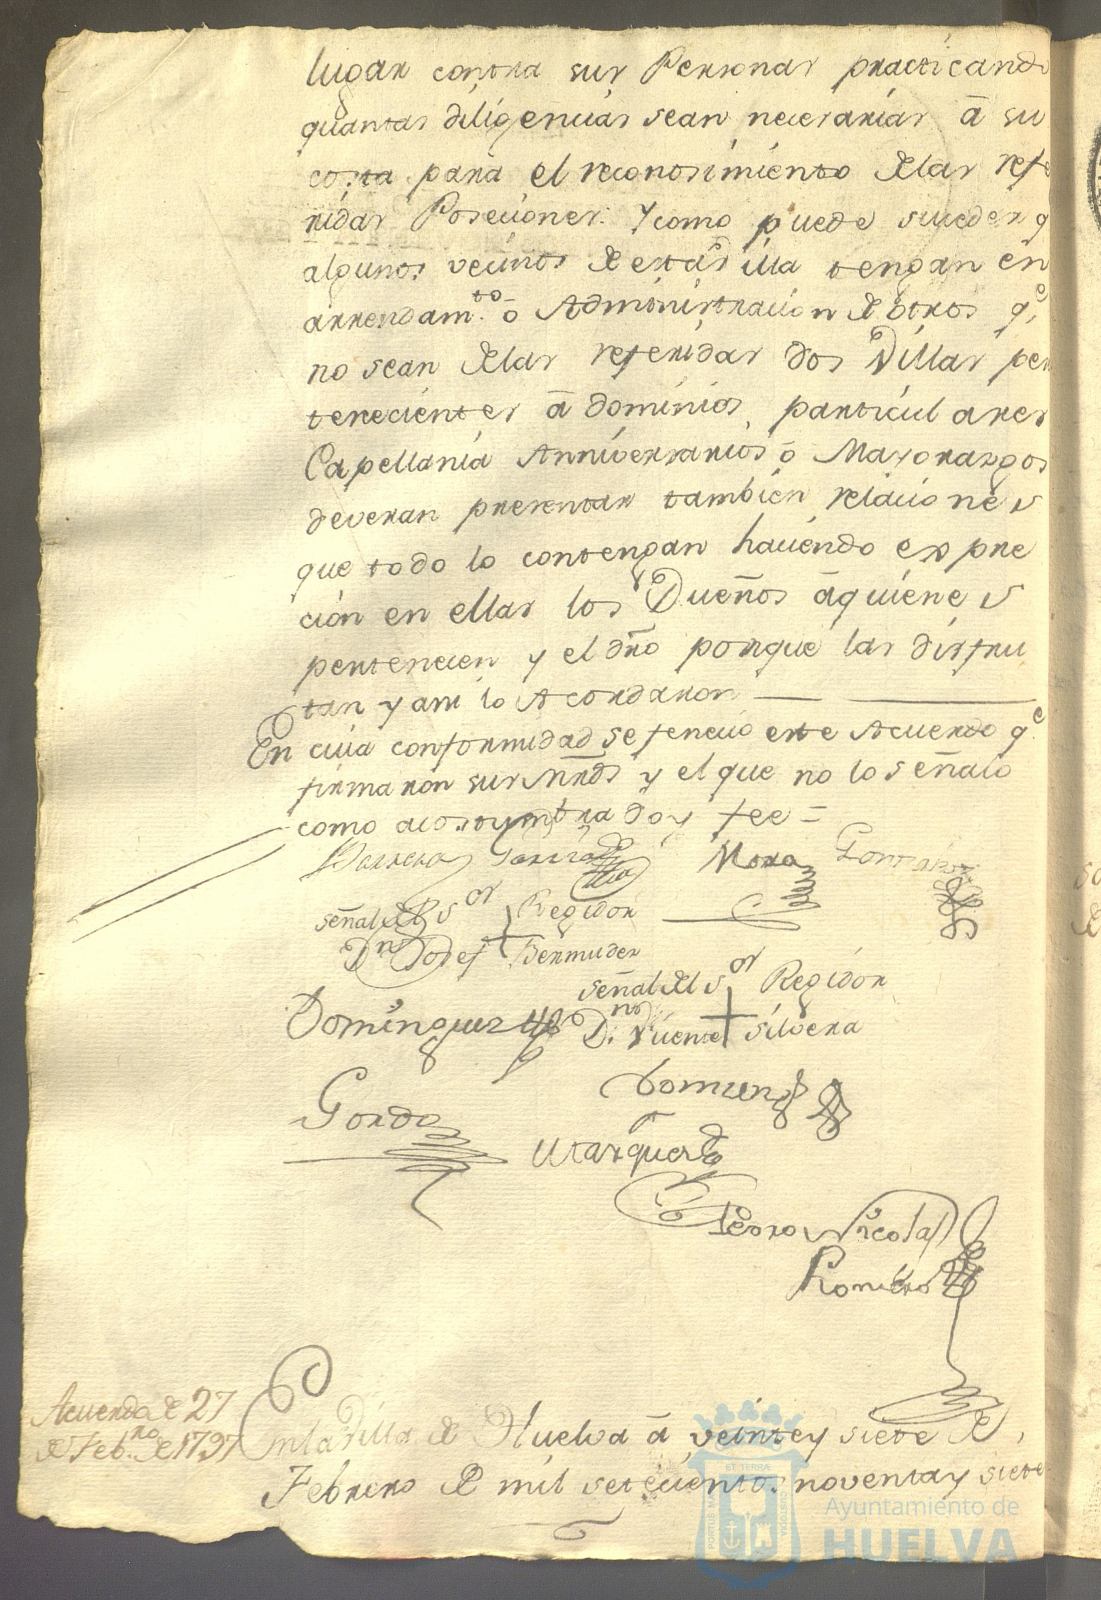 lugar contra sus Personas practicando
quantas diligencias sean necesarias â su
costa para el reconosimiento delas refe
ridas Poseciones. Y como puede suceder q
algunos vecinos de esta villa tengan en
arrendam.to ô Administracion de otros q.e
no sean delas referidas dos Villas per
tenecientes â dominios particulares
Capellania Anniversarios ô Mayorazgos
deveran presentar tambien relaciones
que todo lo contengan haciendo expre
cion en ellas los Dueños âquienes
pertenecen y el dro porque las disfru
tan y asi lo Acordaron
En cuia conformidad se fenecio este Acuerdo q.e
firmaron sus Mrds y el que no lo señalo
como acostumbra doy fee =
Barrera Garcia Mora Gonzalez
señal del S.or Regidor
D.n Josef Bermudez
señal del S.or Regidor
Dominguez D.n Vicente Silvera
Gordo
Marquez
Pedro Nicolas
Romero
Acuerdo de 27
de Feb.ro de 1797
En la Villa de Huelva â veinte y siete de
Febrero de mil setecientos noventa y siete
PORTUS MARIS ET TERRAE CUSTODIA
Ayuntamiento de
HUELVA